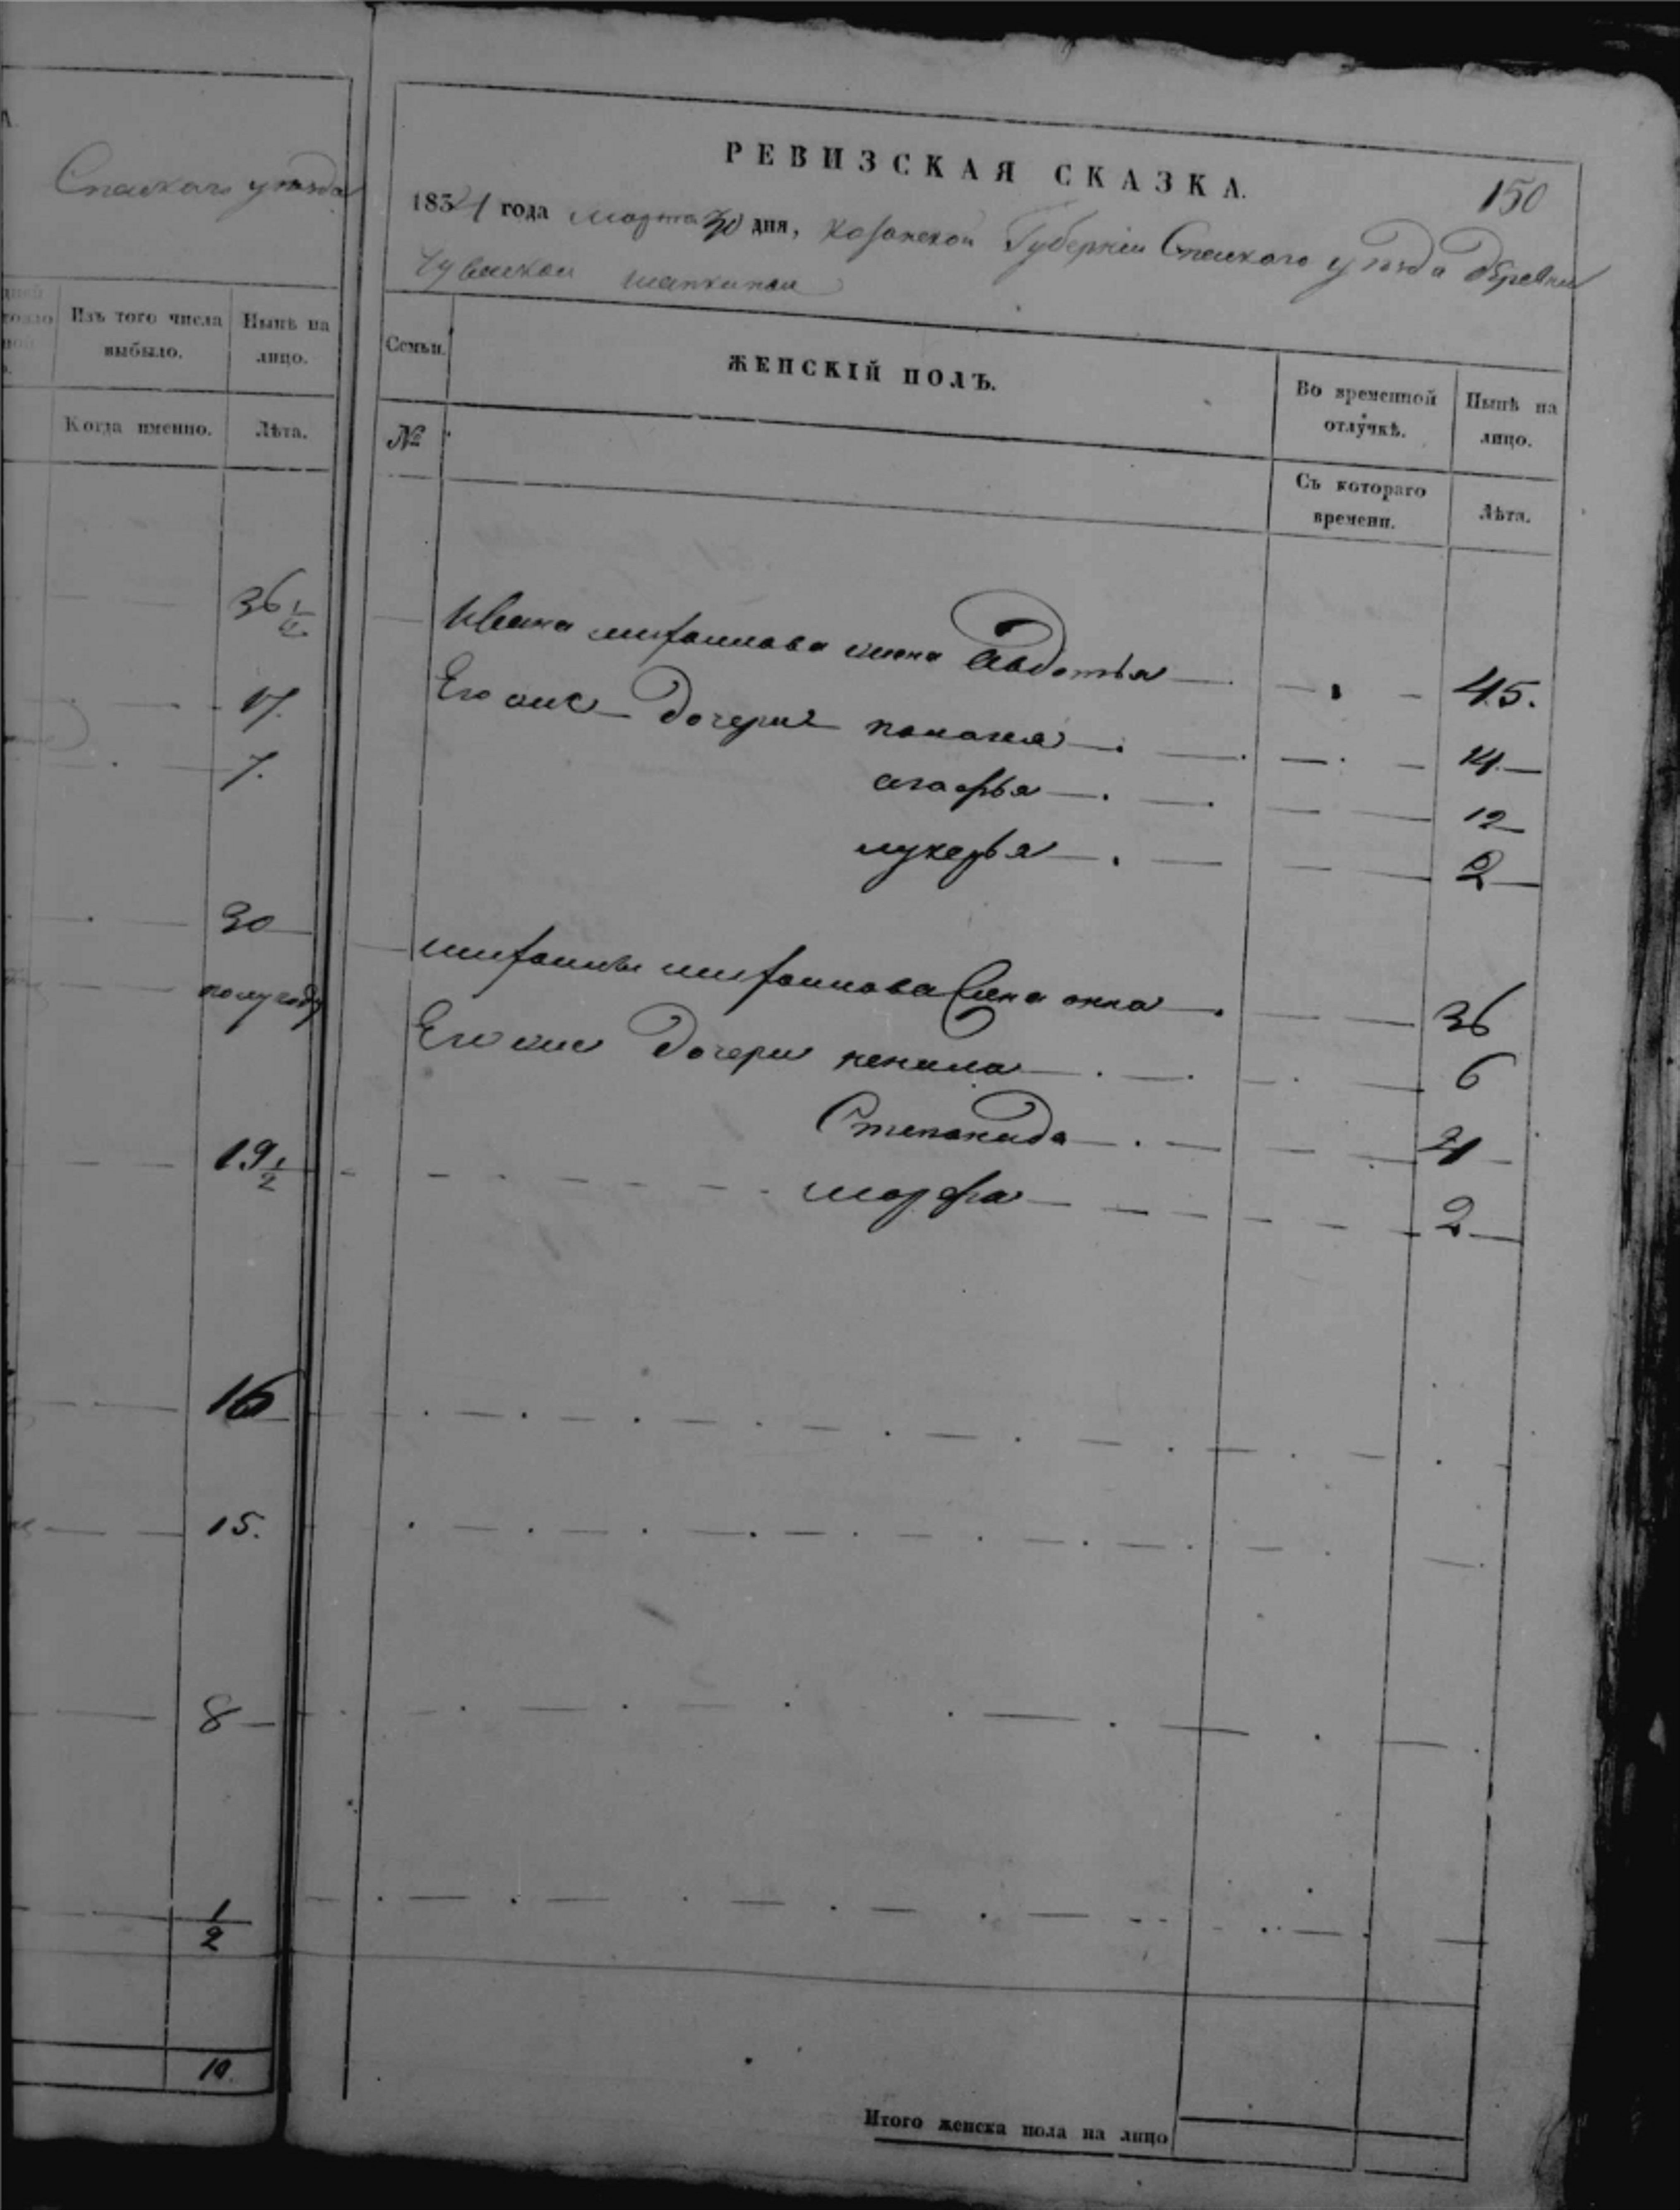 Спаскаго уѣзда
Изъ того числа выбыло.
Нынѣ на лицо.
Когда именно.
Лѣта.
36 1/2
17.
7.
30
полугоду
19 1/2
16
15.
8
1/2
10.
РЕВИЗСКАЯ СКАЗКА.
150
1834 года марта 30 дня, Казанской Губерніи Спаскаго уѣзда Деревни
Чувашской
Семьи.
ЖЕНСКІЙ ПОЛЪ.
Во временной отлучкѣ.
Нынѣ на лицо.
№
Съ котораго времени.
Лѣта.
Ивана жена Авдотья 45.
Его же Дочери 14
агафья 12
лукерья 2
жена анна 36
Его же Дочери ненила 6
Степанида 4
марфа 2
Итого женска пола на лицо